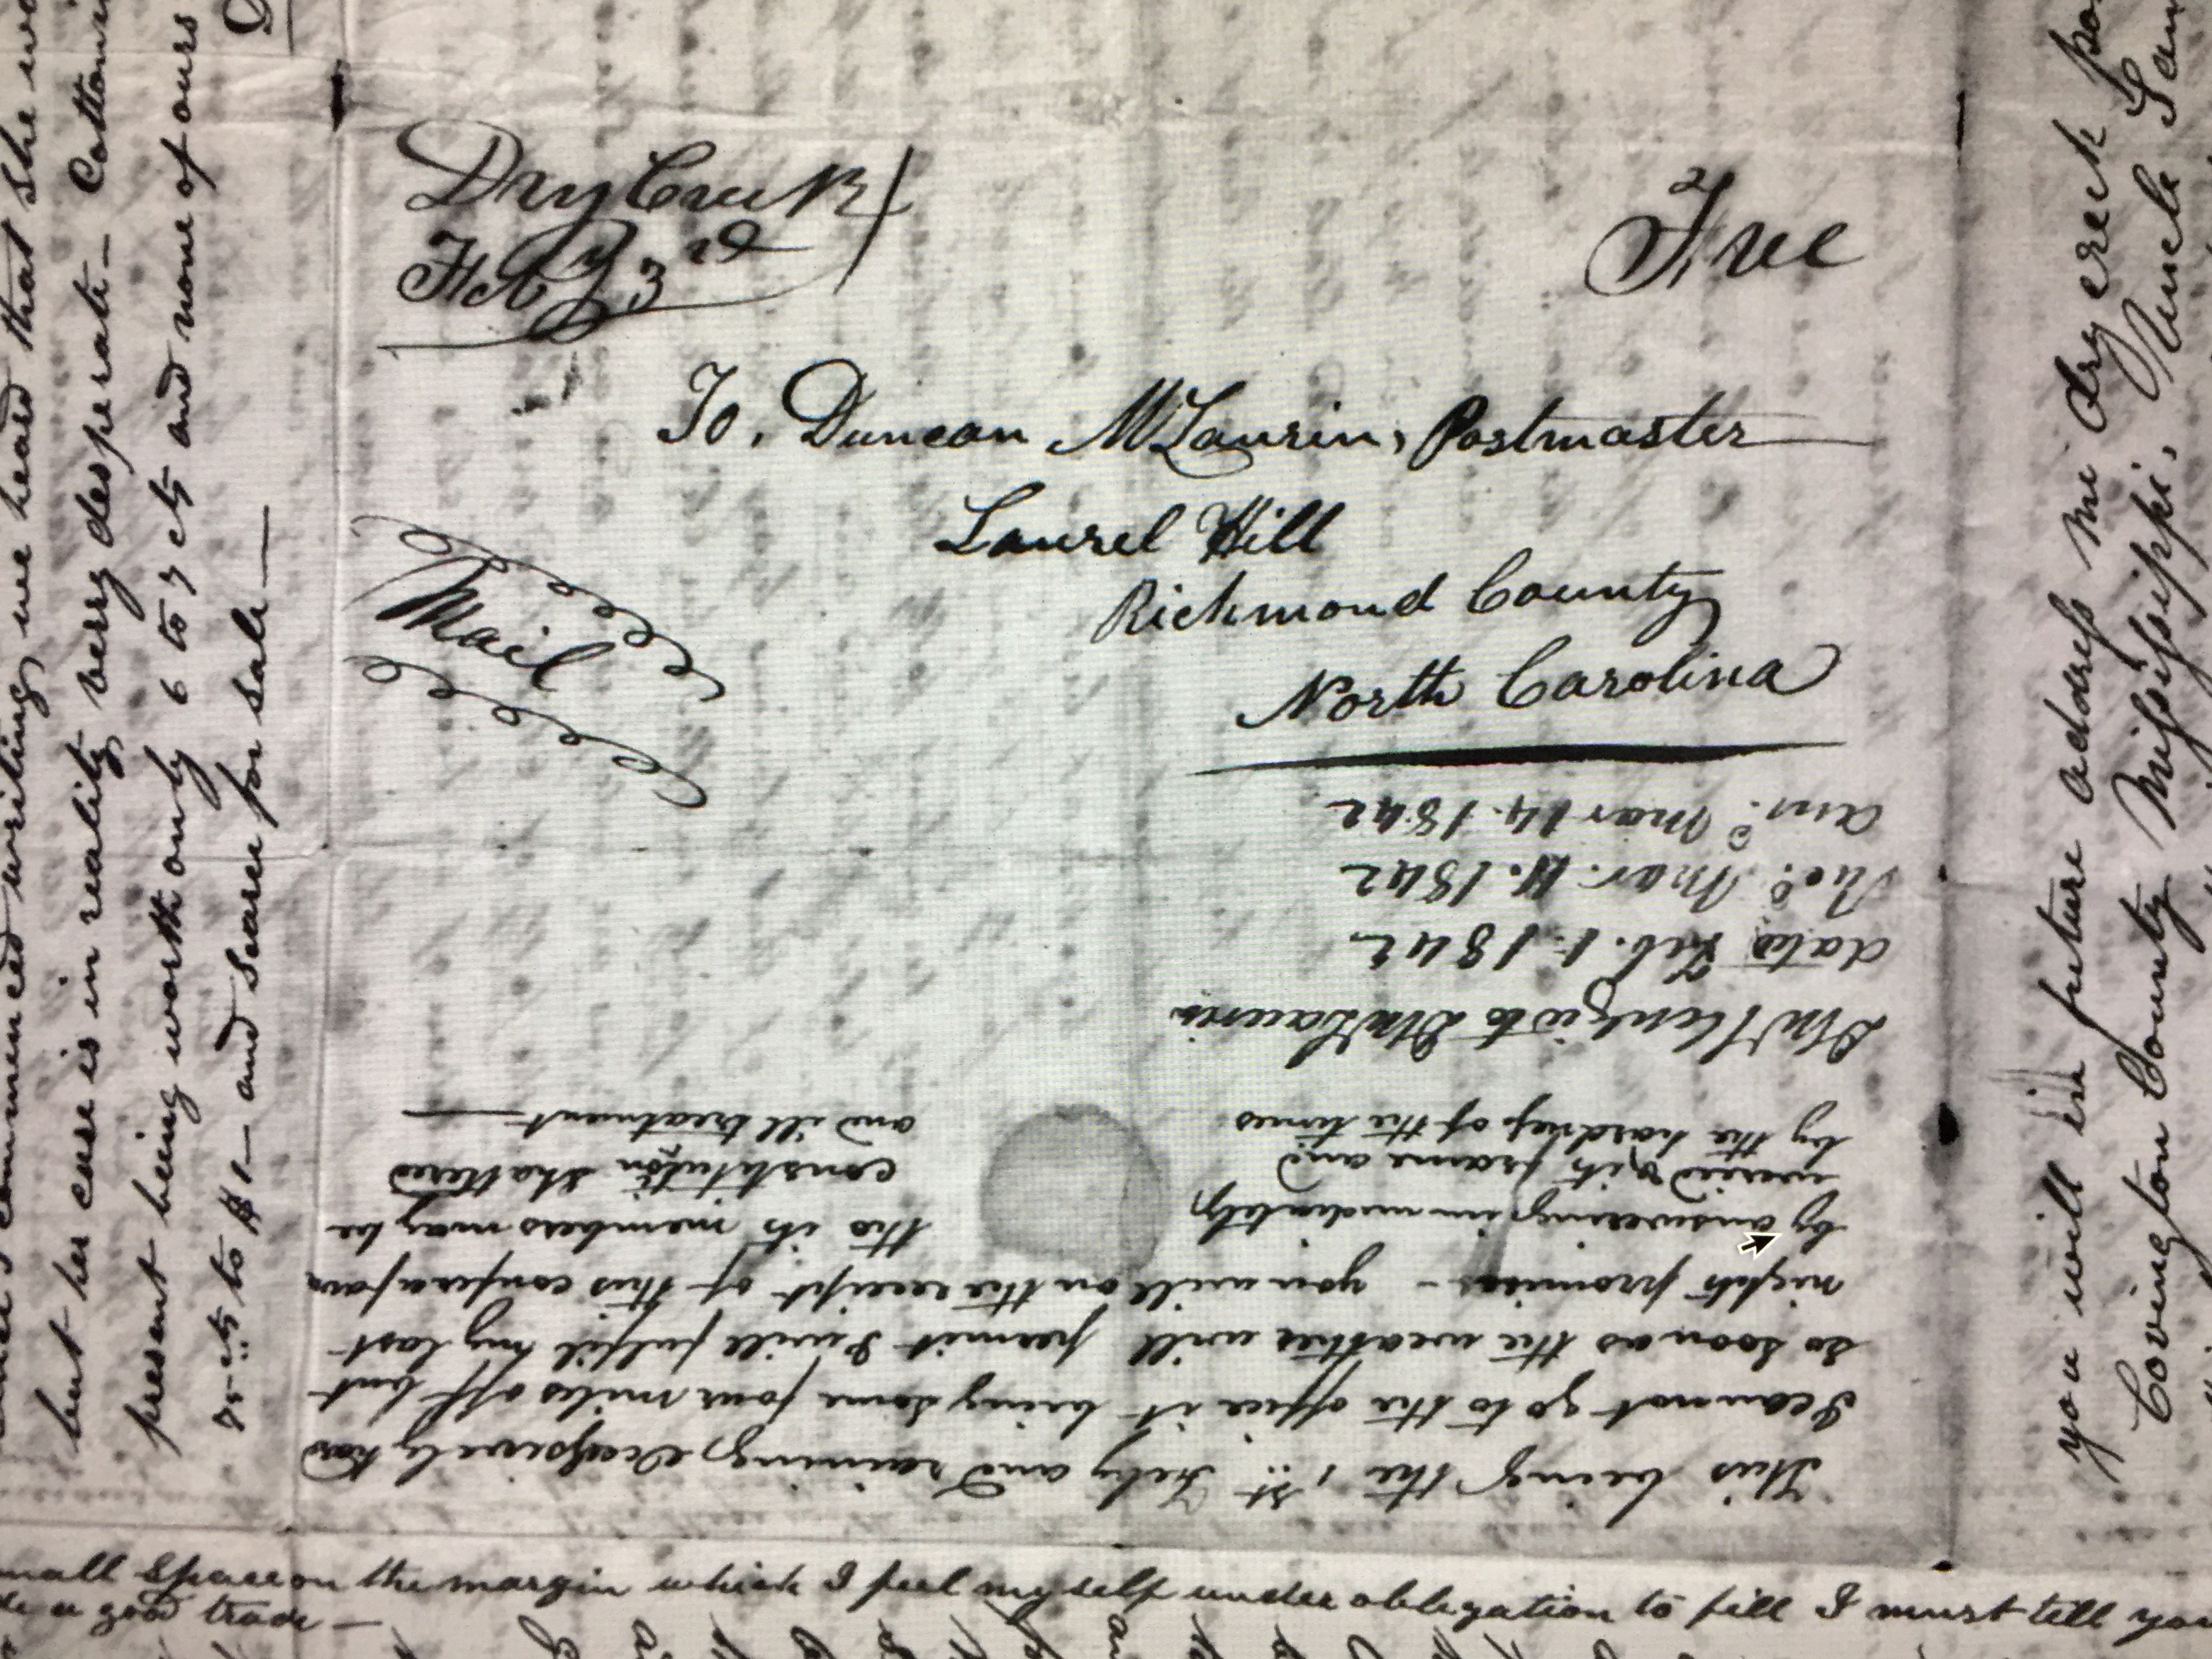 Dry Creek
Feby 3rd
Free
To, Duncan McLaurin, Postmaster
Laurel Hill
Richmond County
North Carolina
Mail
ansd. Mar 14. 1842
Recd. Mar. 11. 1842
dated Feb. 1. 1842
to D McLaurin
This being the 1st Feby and raining excessively hard
I cannot go to the office it being some four miles off but
so soon as the weather will permit I will fulfil my last
nights promise - you will on the receipt of this confer a favor
by answering immediately
the its members may be
wearied & its frame and
constitution shattered
by the hardness of the times
and ill treatment
we heard that she
but her case is in reality verry desperate - Cotton
present being worth only 6 to 7 cts and none of ours
75 cts to $1 - and scarce for sale
you will in future address me Dry creek
Covington County Mississippi, Uncle
small space on the margin which I feel myself under obligation to fill I must tell you
a good trade -